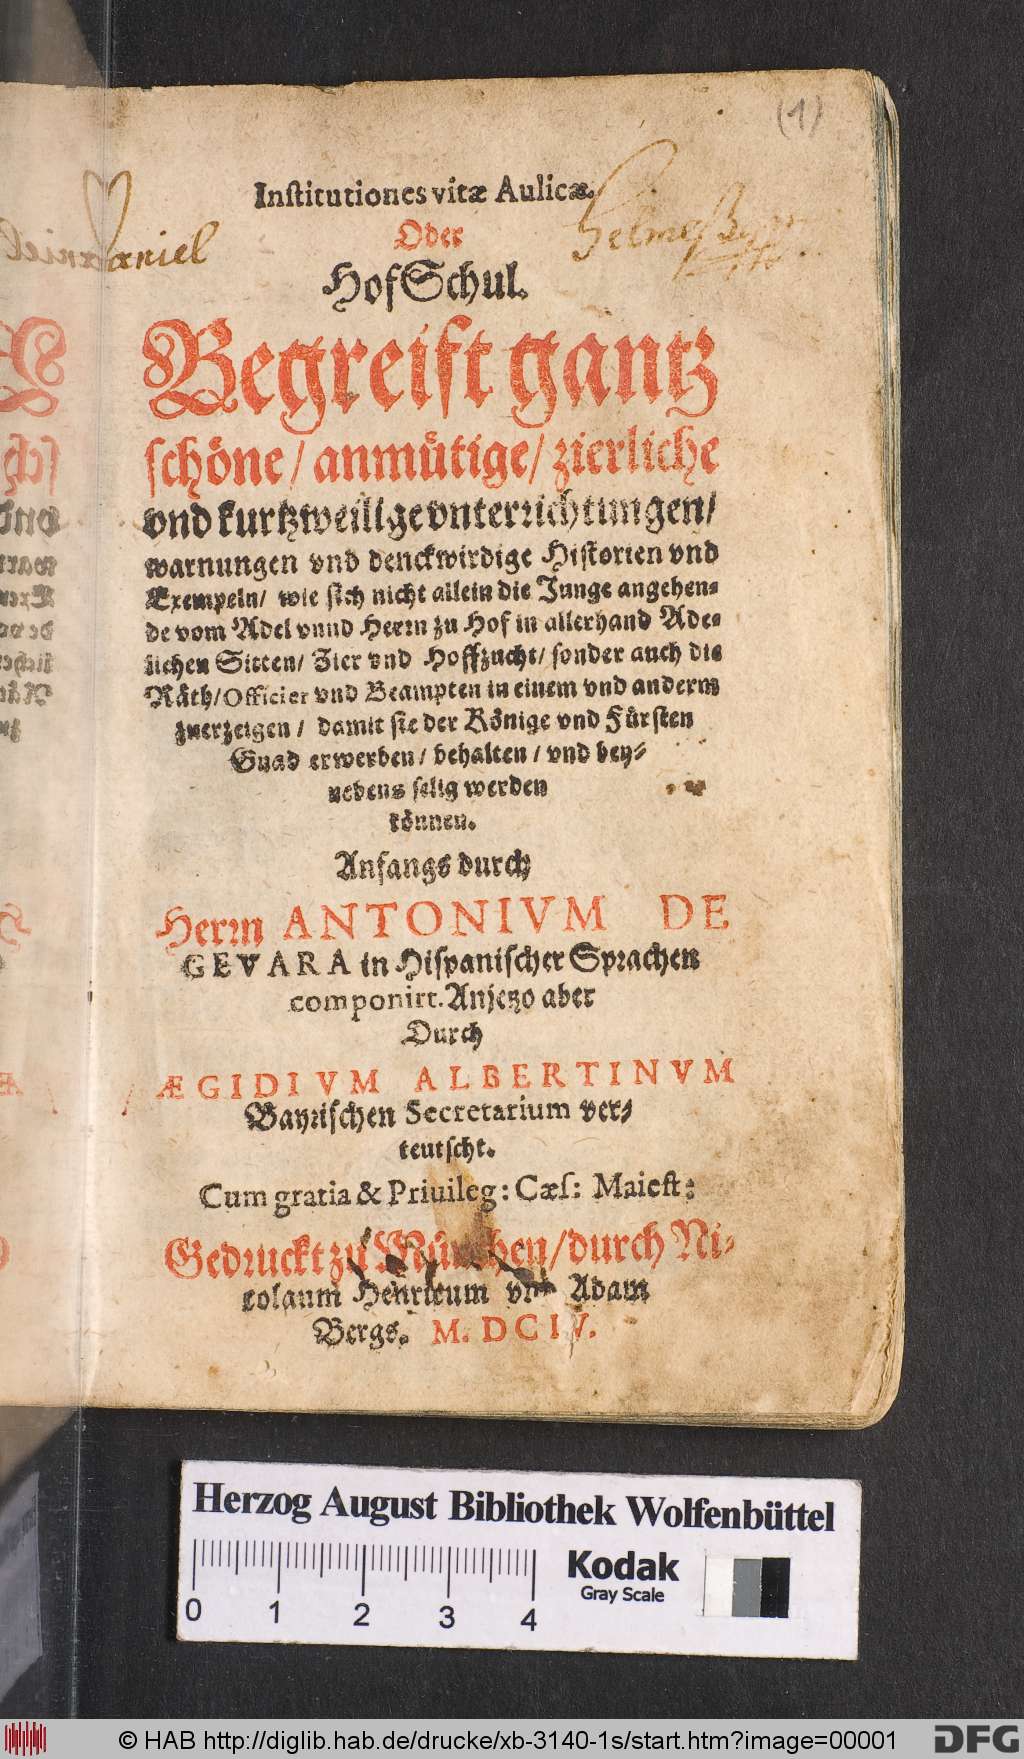 (1)
Inſtitutiones vitæ Aulicæ.
Oder
Daniel
HofSchul.
Begreift gantz
ſchöne / anmuͤtige / zierliche
vnd kurtzweilige vnterrichtungen /
warnungen vnd denckwirdige Hiſtorien vnd
Exempeln / wie ſich nicht allein die Junge angehen⸗
de vom Adel vnnd Herrn zu Hof in allerhand Ade⸗
lichen Sitten / Zier vnd Hoffzucht / ſonder auch die
Raͤth / Officier vnd Beampten in einem vnd anderm
zuerzeigen / damit ſie der Koͤnige vnd Fuͤrſten
Gnad erwerben / behalten / vnd bey⸗
nebens ſelig werden
koͤnnen.
Anfangs durch
Herrn ANTONIVM DE
GEVARA in Hiſpaniſcher Sprachen
componirt. Anjetzo aber
Durch
ÆGIDIVM ALBERTINVM
Bayriſchen Secretarium ver⸗
teutſcht.
Cum gratia & Priuileg: Cæſ: Maieſt:
Gedruckt zu München / durch Ni⸗
colaum Henricum vnd Adam
Bergs. M. DCIV.
Herzog August Bibliothek Wolfenbüttel
Kodak
Gray Scale
0 1 2 3 4
© HAB http://diglib.hab.de/drucke/xb-3140-1s/start.htm?image=00001
DFG